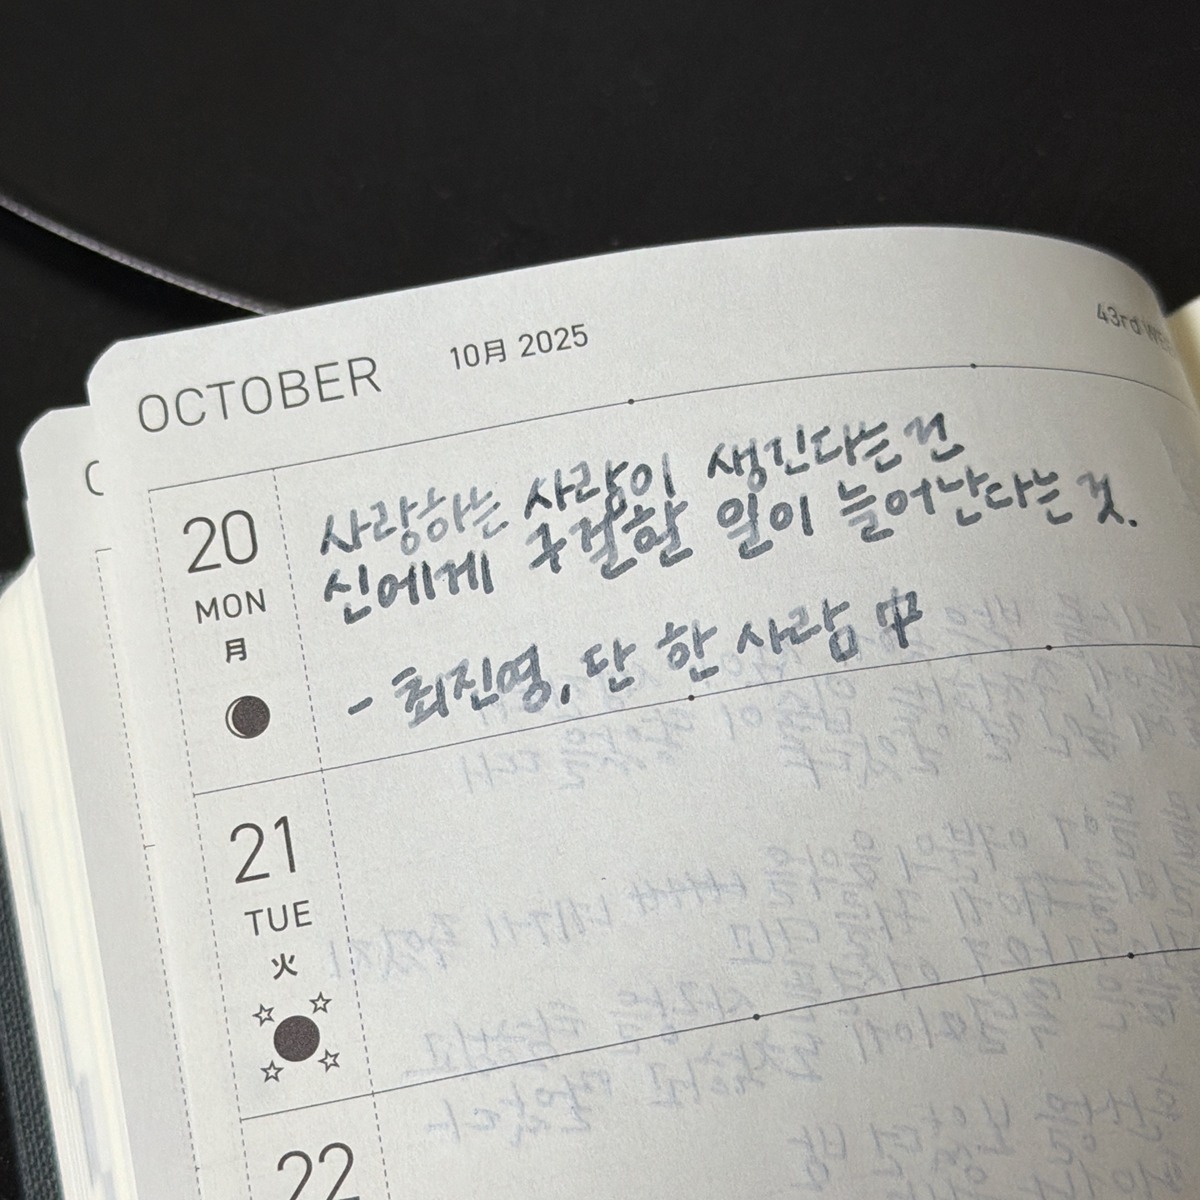 OCTOBER 10月 2025
43rd
20
MON
月
사랑하는 사람이 생긴다는 건
신에게 구걸할 일이 늘어난다는 것.
- 최진영, 단 한 사람 中
21
TUE
火
22